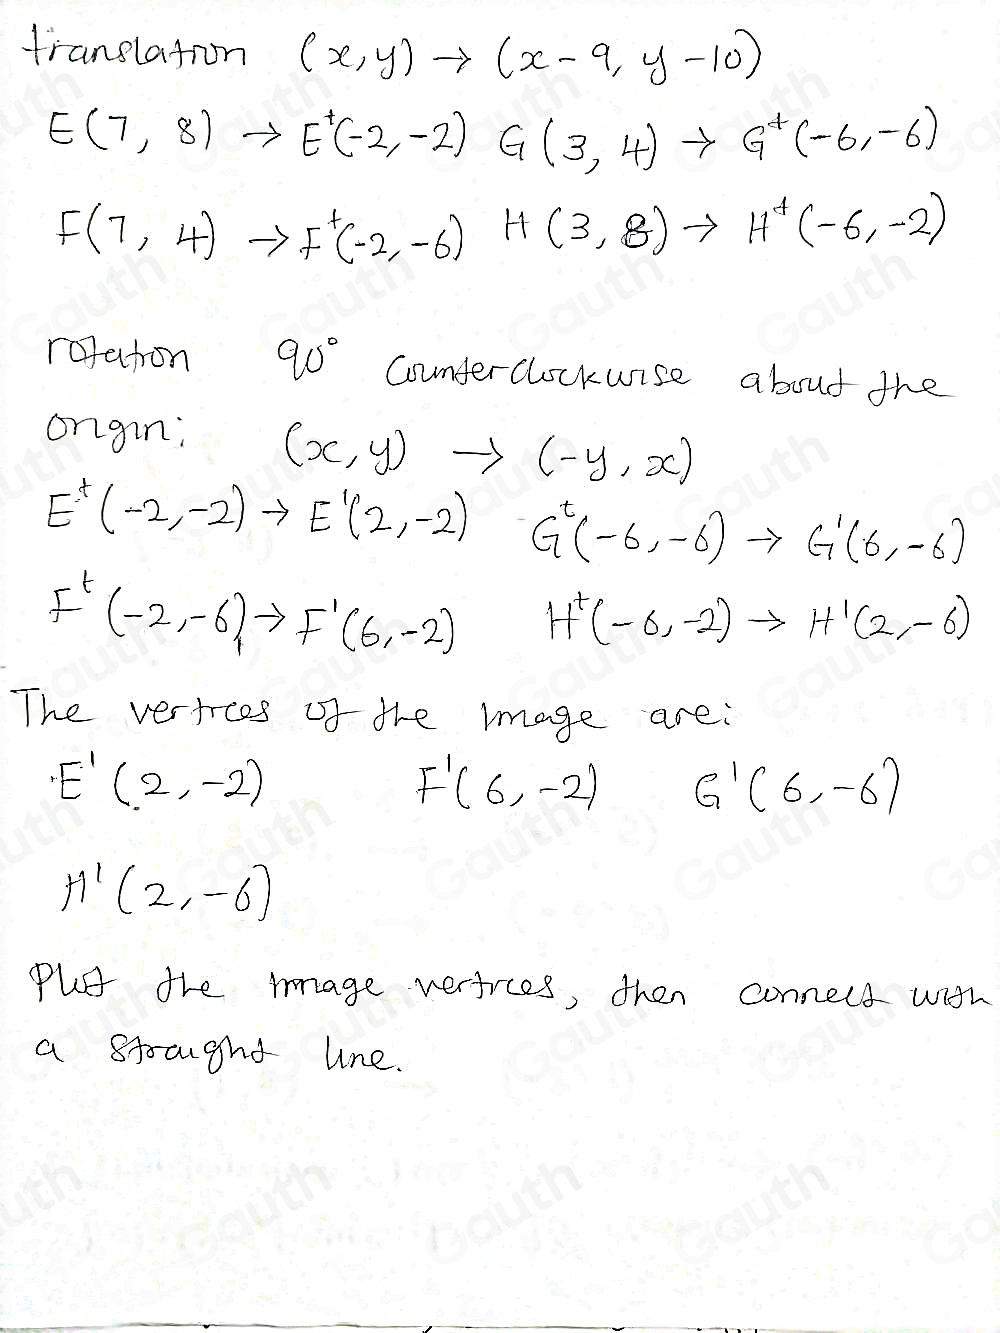 translation (x, y) → (x - 9, y - 10)
E(7, 8) → E^t(-2, -2) G(3, 4) → G^t(-6, -6)
F(7, 4) → F^t(-2, -6) H(3, 8) → H^t(-6, -2)
rotation 90° counterclockwise about the
origin: (x, y) → (-y, x)
E^t(-2, -2) → E'(2, -2) G^t(-6, -6) → G'(6, -6)
F^t(-2, -6) → F'(6, -2) H^t(-6, -2) → H'(2, -6)
The vertices of the image are:
E'(2, -2) F'(6, -2) G'(6, -6)
H'(2, -6)
Plot the image vertices, then connect with
a straight line.